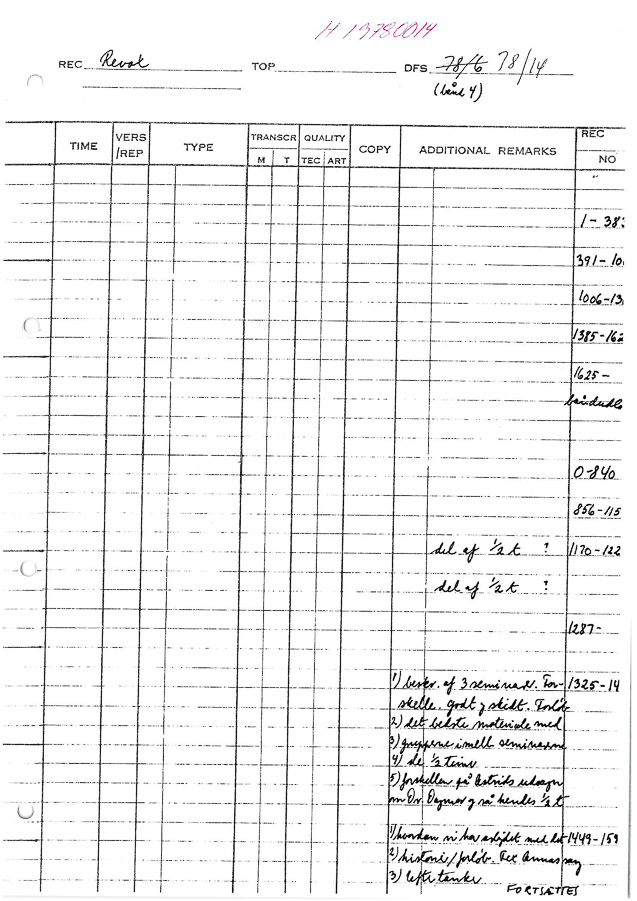 H 13780014
REC Revok TOP DFS 78/6 78/14
(bånd 4)
TIME VERS /REP TYPE TRANSCR M T QUALITY TEC ART COPY ADDITIONAL REMARKS REC NO
1-383
391-10
1006-13
1385-162
1625-
0-840
856-115
del af 1/2 t ? 1170-122
del af 1/2 t ?
1287-
1) beskr. af 3 seminarer. For- 1325-14
skelle. godt og skidt. Forløb
2) det bedste materiale med
3) grupperne imell. seminarerne
4) de 1/2 time
5) forskellen på Astrids udsagn
om Dr. og så hendes 1/2 t
1) hvordan vi har arbejdet med det 1449-159
2) historie/forløb. Annas
3) eftertanke
FORTSÆTTES